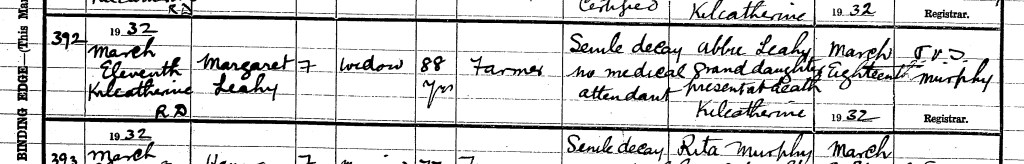 Certified Kilcatherine 1932 Registrar.
R.D
BINDING EDGE—(This Mar
392 1932 March Eleventh Kilcatherine R.D
Margaret Leahy
F
Widow
88 Yrs
Farmer
Senile decay no medical attendant
Abbie Leahy grand daughter present at death Kilcatherine
March Eighteenth 1932
T. Murphy Registrar.
393 1932 March
F
Senile decay
Rita Murphy
March